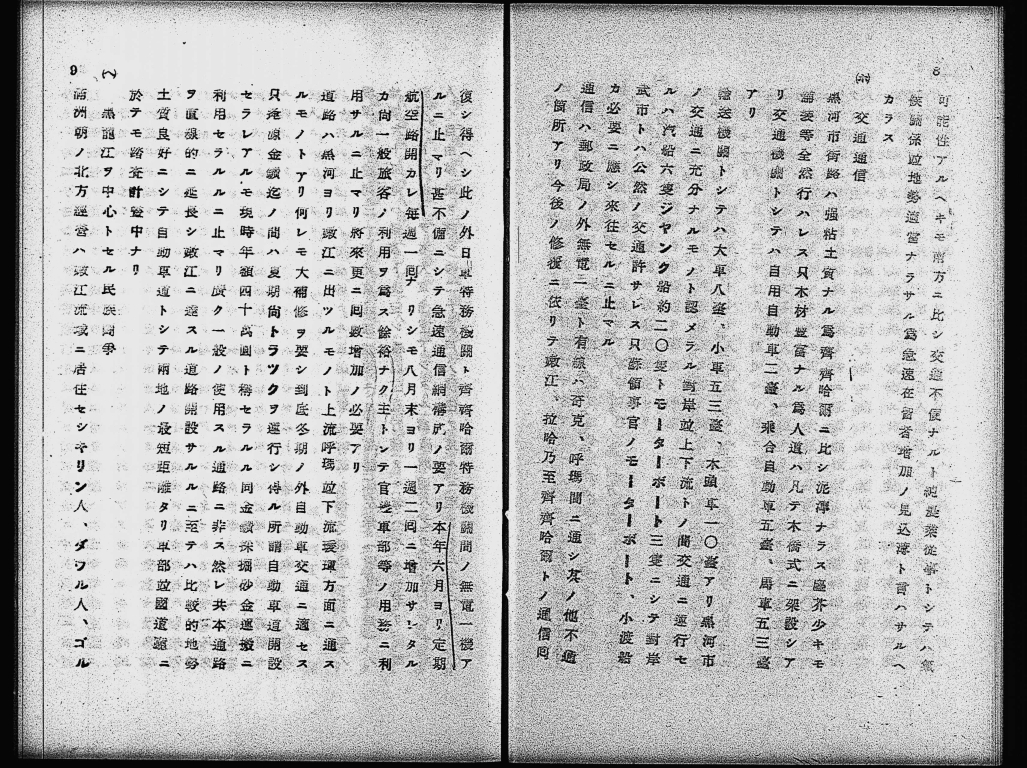 8
可能性アルヘキモ南方ニ比シ交通不便ナルト従事トシテハ気
候関係竝地勢適当ナラサル為急速在留者増加ノ見込薄ト言ハサルヘ
カラス
(ホ) 交通通信
黒河市街路ハ強粘土質ナル為齊齊哈爾ニ比シ泥濘ナラス塵芥少キモ
舗装等全然行ハレス只木材豊富ナル為人道ハ凡テ木橋式ニ架設シア
リ交通機関トシテハ自用自動車二臺、乗合自動車五臺、馬車五三臺
アリ
輸送機関トシテハ大車八臺、小車五三臺、木頭車一〇臺アリ黒河市
ノ交通ニ充分ナルモノト認メラル対岸竝上下流トノ間交通ニ運行セ
ルハ汽船六隻ジヤンク船約二〇隻トモーターボート三隻ニシテ対岸
武市トハ公然ノ交通許サレス只蘇領事官ノモーターボート、小渡船
カ必要ニ応シ来往セルニ止マル
通信ハ郵政局ノ外無電一臺ト有線ハ奇克、呼瑪間ニ通シ其ノ他不通
ノ箇所アリ今後ノ修復ニ依リテ嫩江、拉哈乃至齊齊哈爾トノ通信回
9
復シ得ヘシ此ノ外日軍特務機関ト齊齊哈爾特務機関間ノ無電一機ア
ルニ止マリ甚不備ニシテ急速通信網構成ノ要アリ本年六月ヨリ定期
航空路開カレ毎週一回ナリシモ八月末ヨリ一週二回ニ増加サレタル
カ尚一般旅客ノ利用ヲ為ス餘裕ナク主トシテ官憲軍部等ノ用務ニ利
用サルニ止マリ将来更ニ回数増加ノ必要アリ
道路ハ黒河ヨリ嫩江ニ出ツルモノト上流呼瑪竝下流璦琿方面ニ通ス
ルモノトアリ何レモ大補修ヲ要シ到底冬期ノ外自動車交通ニ適セス
只達源金鑛迄ノ間ハ夏期尚トラツクヲ運行シ得ル所謂自動車道開設
セラレアルモ現時年額四十萬圓ト稱セラルル同金鑛採掘砂金運搬ニ
利用セラルルニ止マリ広ク一般ノ使用スル通路ニ非ス然レ共本通路
ヲ直線的ニ延長シ嫩江ニ達スル道路開設サルルニ至テハ比較的地勢
土質良好ニシテ自動車道トシテ両地ノ最短距離タリ軍部竝國道處ニ
於テモ路査計畫中ナリ
(ヘ) 黒龍江ヲ中心トセル民族闘争
満洲朝ノ北方経営ハ嫩江流域ニ居住セシキリン人、ダウル人、ゴル